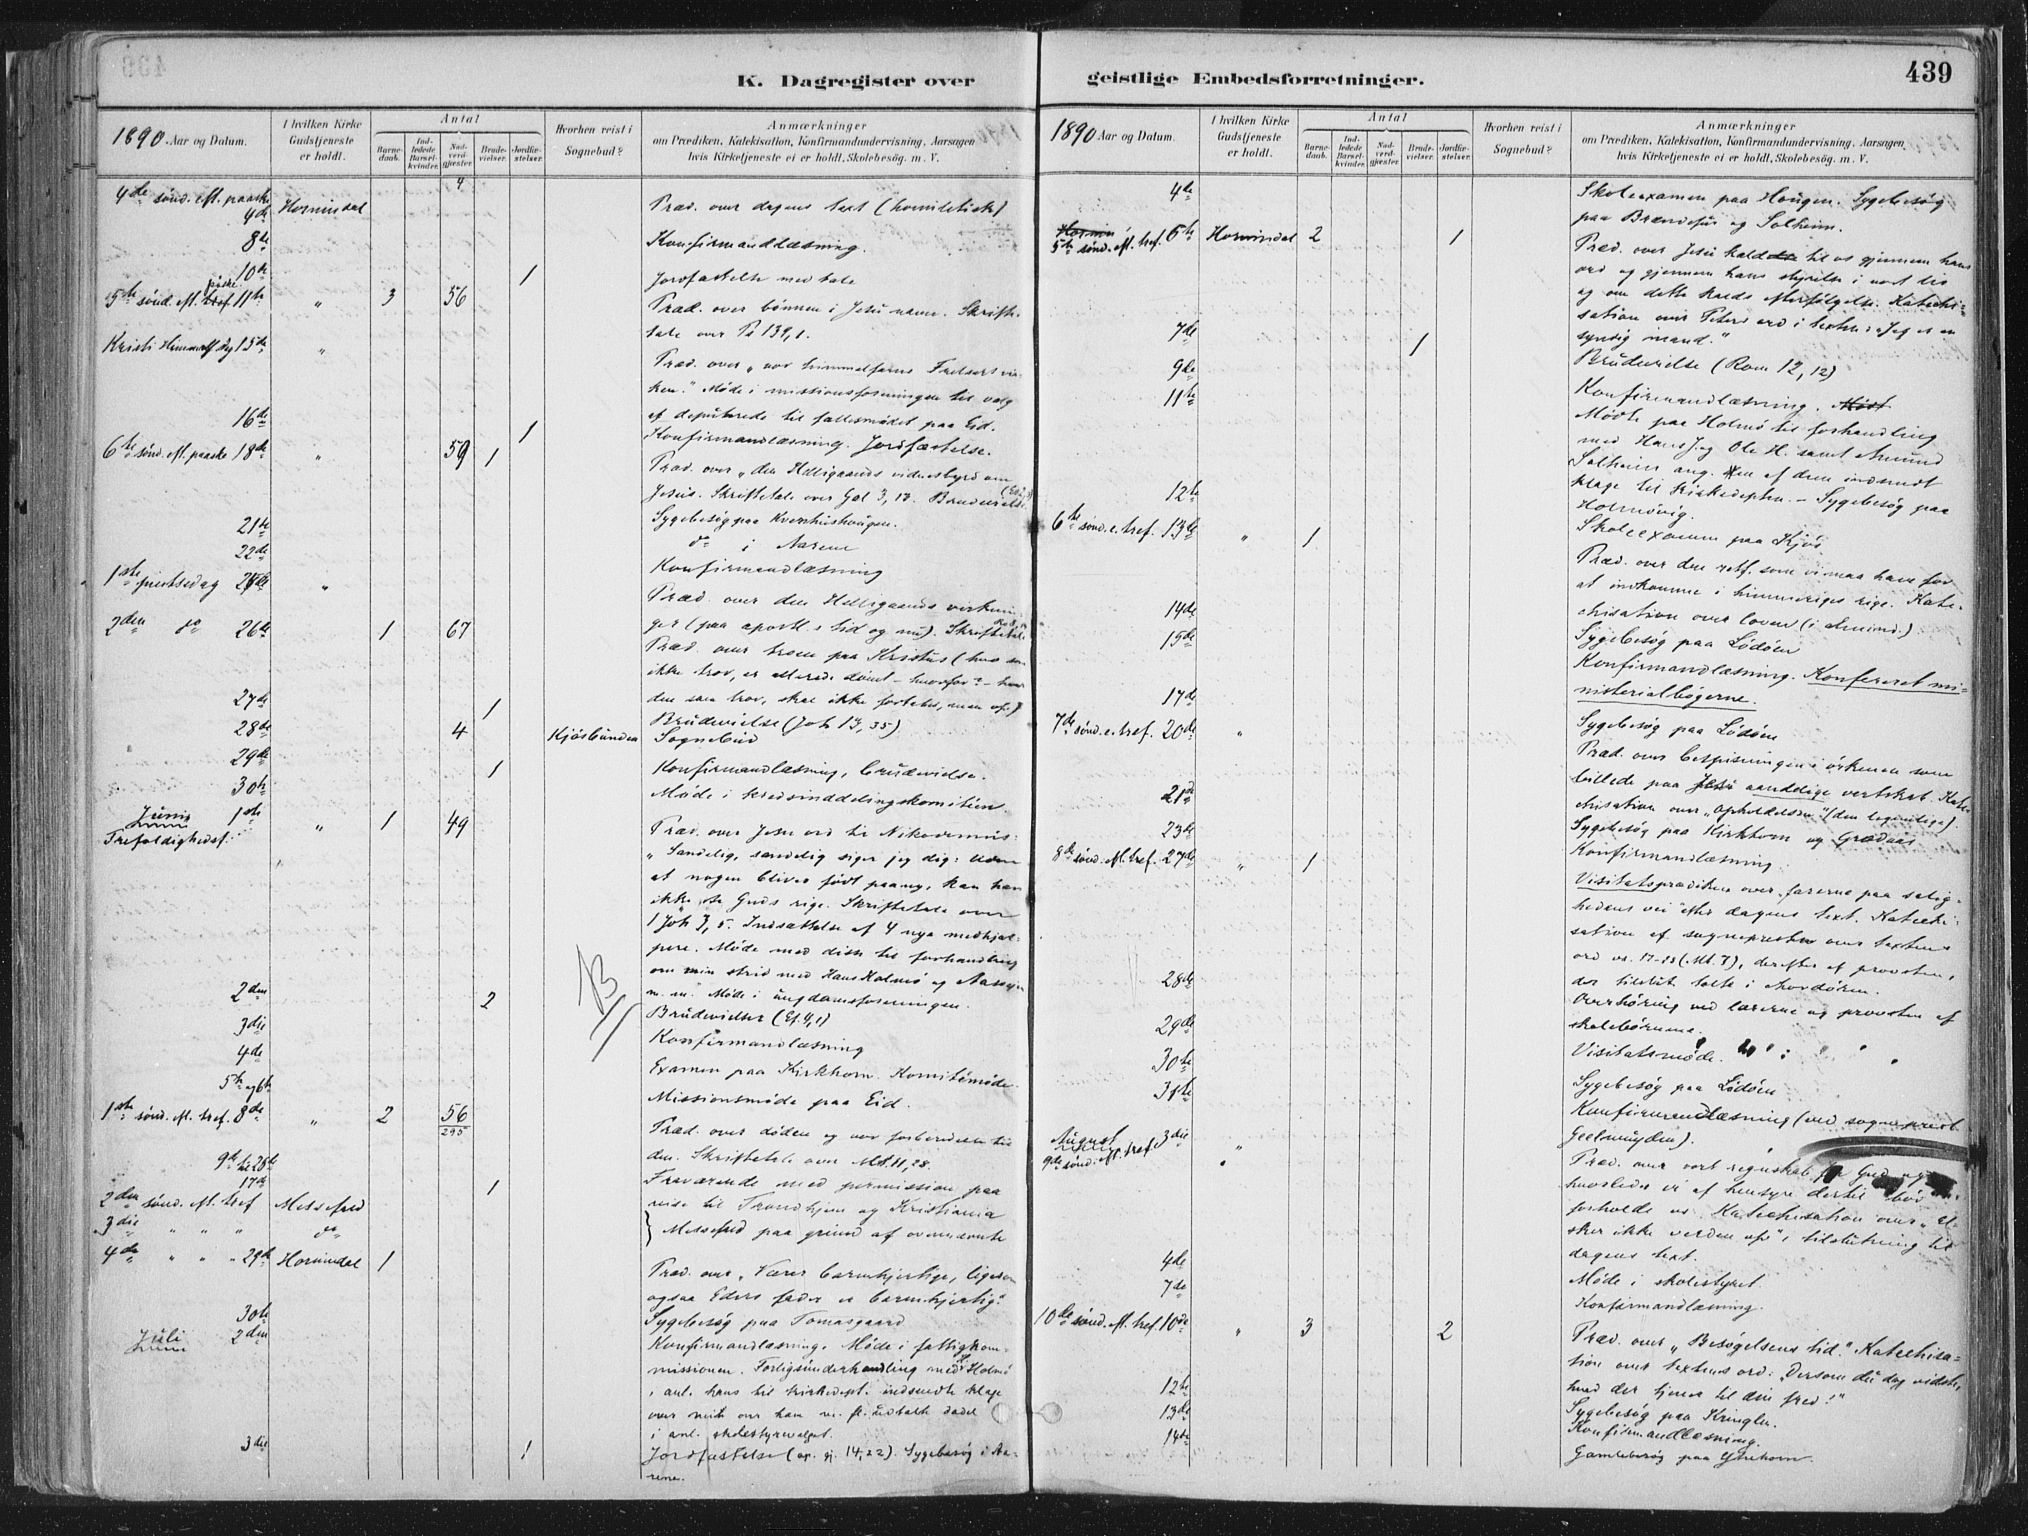 K. Dagregister over
1890 Aar og Datum.
I hvilken Kirke Gudstjeneste er holdt.
Antal
Barnedaab.
Indledede Barselkvinder.
Nadverdgjester.
Brudevielser.
Jordfæstelser.
Hvorhen reist i Sognebud?
Anmærkninger
om Prædiken, Katekisation, Konfirmandundervisning, Aarsagen
hvis Kirketjeneste ei er holdt, Skolebesög. m. V.
4de sønd. eft. paaske 4de Hornindal Præd. over dagens text (homiletisk)
8de Konfirmandlæsning.
10de 1 Jordfæstelse med tale
5te sønd. eft. påske 11te " 3 56 Præd. over bønnen i Jesu navn. Skrifte-
tale over Ps 139,1.
Kristi Himmelf. dag 15de " Præd. over "vor himmelfarne Frelsers vir-
ken." Møde i missionsforeningen til valg
af deputerede til fællesmødet paa Eid.
16de 1 Konfirmandlæsning. Jordfæstelse.
6te sønd. eft. paaske 18de " 59 1 Præd. over "den Helligaands vidnesbyrd om
Jesus. Skriftetale over Gal 3, 13. Brudevielse
21de Sygebesøg paa Kvernhushougen.
22de do i Aarene
Konfirmandlæsning
1ste pintsedag 25de " Præd. over den Helligaands virknin-
ger (paa apostl.s tid og nu). Skriftetale
2den do 26de 1 67 Præd. over troen paa Kristus (hvo som
ikke tror, er allerede dømt - hvorfor? - hver
den som tror, skal ikke fortabes, men osv)
27de 1 Brudevielse (Joh 13, 35)
28de 4 Kjøsbunden Sognebud
29de 1 Konfirmandlæsning, brudevielse.
30te Møde i kredsinddelingskomitéen.
Juni 1ste " 1 49 Præd. over Jesu ord til Nikodemus:
Trefoldighedsf. "Sandelig, sandelig siger jeg dig: Uden
at nogen bliver født paany, kan han
ikke se Guds rige. Skriftetale over
1 Joh 3, 5. Indsættelse af 4 nye medhjæl-
pere. Møde med disse til forhandling
om min strid med Hans Holmø og
m. m. Møde i ungdomsforeningen.
2den 2 Brudevielser (Ef. 4,1)
3die Konfirmandlæsning
4de Examen paa Kirkhorn. Komitémøde.
5te og 6te Missionsmøde paa Eid.
1ste sønd. eft. tref. 8de " 2 56 Præd. over døden og vor forberedelse til
295 den. Skriftetale over Mt. 11, 28.
9de til 28de Fraværende med permission paa
17de 1 reise til Trondhjem og Kristiania
2den sønd. eft. tref Messefrd
3die " " " do Messefrd paa grund af ovennævnte
4de " " " 29de Hornindal 1 Præd. over "Værer barmhjertige, ligesom
ogsaa Eders fader er barmhjertig."
30te Sygebesøg paa Tomasgaard
Juli 2den Konfirmandlæsning. Møde i fattigkom-
missionen. Forligsunderhandling med Holmø
i anl. hans til kirkedept. indsendte klage
over mit over ham udtalt dadel
i anl. skolestyrevalget.
3die 1 Jordfæstelse (ap. gj. 14,22). Sygebesøg i Aa-
rene.
B
geistlige Embedsforretninger.
439
1890 Aar og Datum.
I hvilken Kirke Gudstjeneste er holdt.
Antal
Barnedaab.
Indledede Barselkvinder.
Nadverdgjester.
Brudevielser.
Jordfæstelser.
Hvorhen reist i Sognebud?
Anmærkninger
om Prædiken, Katekisation, Konfirmandundervisning, Aarsagen
hvis Kirketjeneste ei er holdt, Skolebesög. m. V.
4de Skoleexamen paa Haugen. Sygebesøg
paa og Solheim.
5te sønd. eft. tref. 6te Hornindal 2 1 Præd. over Jesu kald til os gjennem hans
ord og gjennem hans styrelse i vort liv
og om dette kalds efterfølgelse. Kateki-
sation over Peters ord i texten: "Jeg er en
syndig mand."
7de 1 Brudevielse (Rom 12, 12)
9de Konfirmandlæsning.
11te Møde paa Holmø til forhandling
med Hans J. og Ole H. samt Amund
Solheim ang. den af dem indsendt
klage til Kirkedeptm. - Sygebesøg paa
Holmøvig.
12te Skoleexamen paa Kjøs
6te sønd. e. tref. 13de " 1 Præd. over den retf. som vi maa have for
at indkomme i himmeriges rige. Kate-
chisation over loven (i Almind.)
14de Sygebesøg paa Lødøen
15de Konfirmandlæsning. Konfereret mi-
nisterialbøgerne.
17de Sygebesøg paa Lødøen
7de sønd. e. tref. 20de " Præd. over bespisningen i ørkenen som
billede paa Jesu aandelige vertskab. Kate-
chisation over "opholdelsen" (den legemlige).
21de Sygebesøg paa Kirkhorn og Grodaas
23de Konfirmandlæsning.
8de sønd. eft. tref. 27de " 1 Visitatsprædiken over "farerne paa salig-
hedens vei" efter dagens text. Kateki-
sation af sognepresten over textens
ord vs. 17-23 (Mt. 7), derefter af provsten,
der tilslut talte i kordøren.
28de Overhøring ved lærerne og provsten af
skolebørnene.
29de Visitatsmøde.
30te Sygebesøg paa Lødøen
31te Konfirmandlæsning (ved sogneprest
Geelmuyden).
August 3die "
9de sønd. eft. tref. Præd. over vort regnskab for Gud og
hvorledes vi af hensyn dertil bør
forholde os. Katechisation over "El-
sker ikke verden osv" i tilslutning til
dagens text.
4de Møde i skolestyret
7de Konfirmandlæsning.
10de sønd. eft. tref. 10de " 3 2 Præd. over "Besøgelsens tid." Katechisa-
tion over textens ord: "Dersom du dog vidste,
hvad der tjener til din fred!"
12te Sygebesøg paa Kringlen.
13de Konfirmandlæsning.
14de Gamlebesøg paa Ytrehorn.